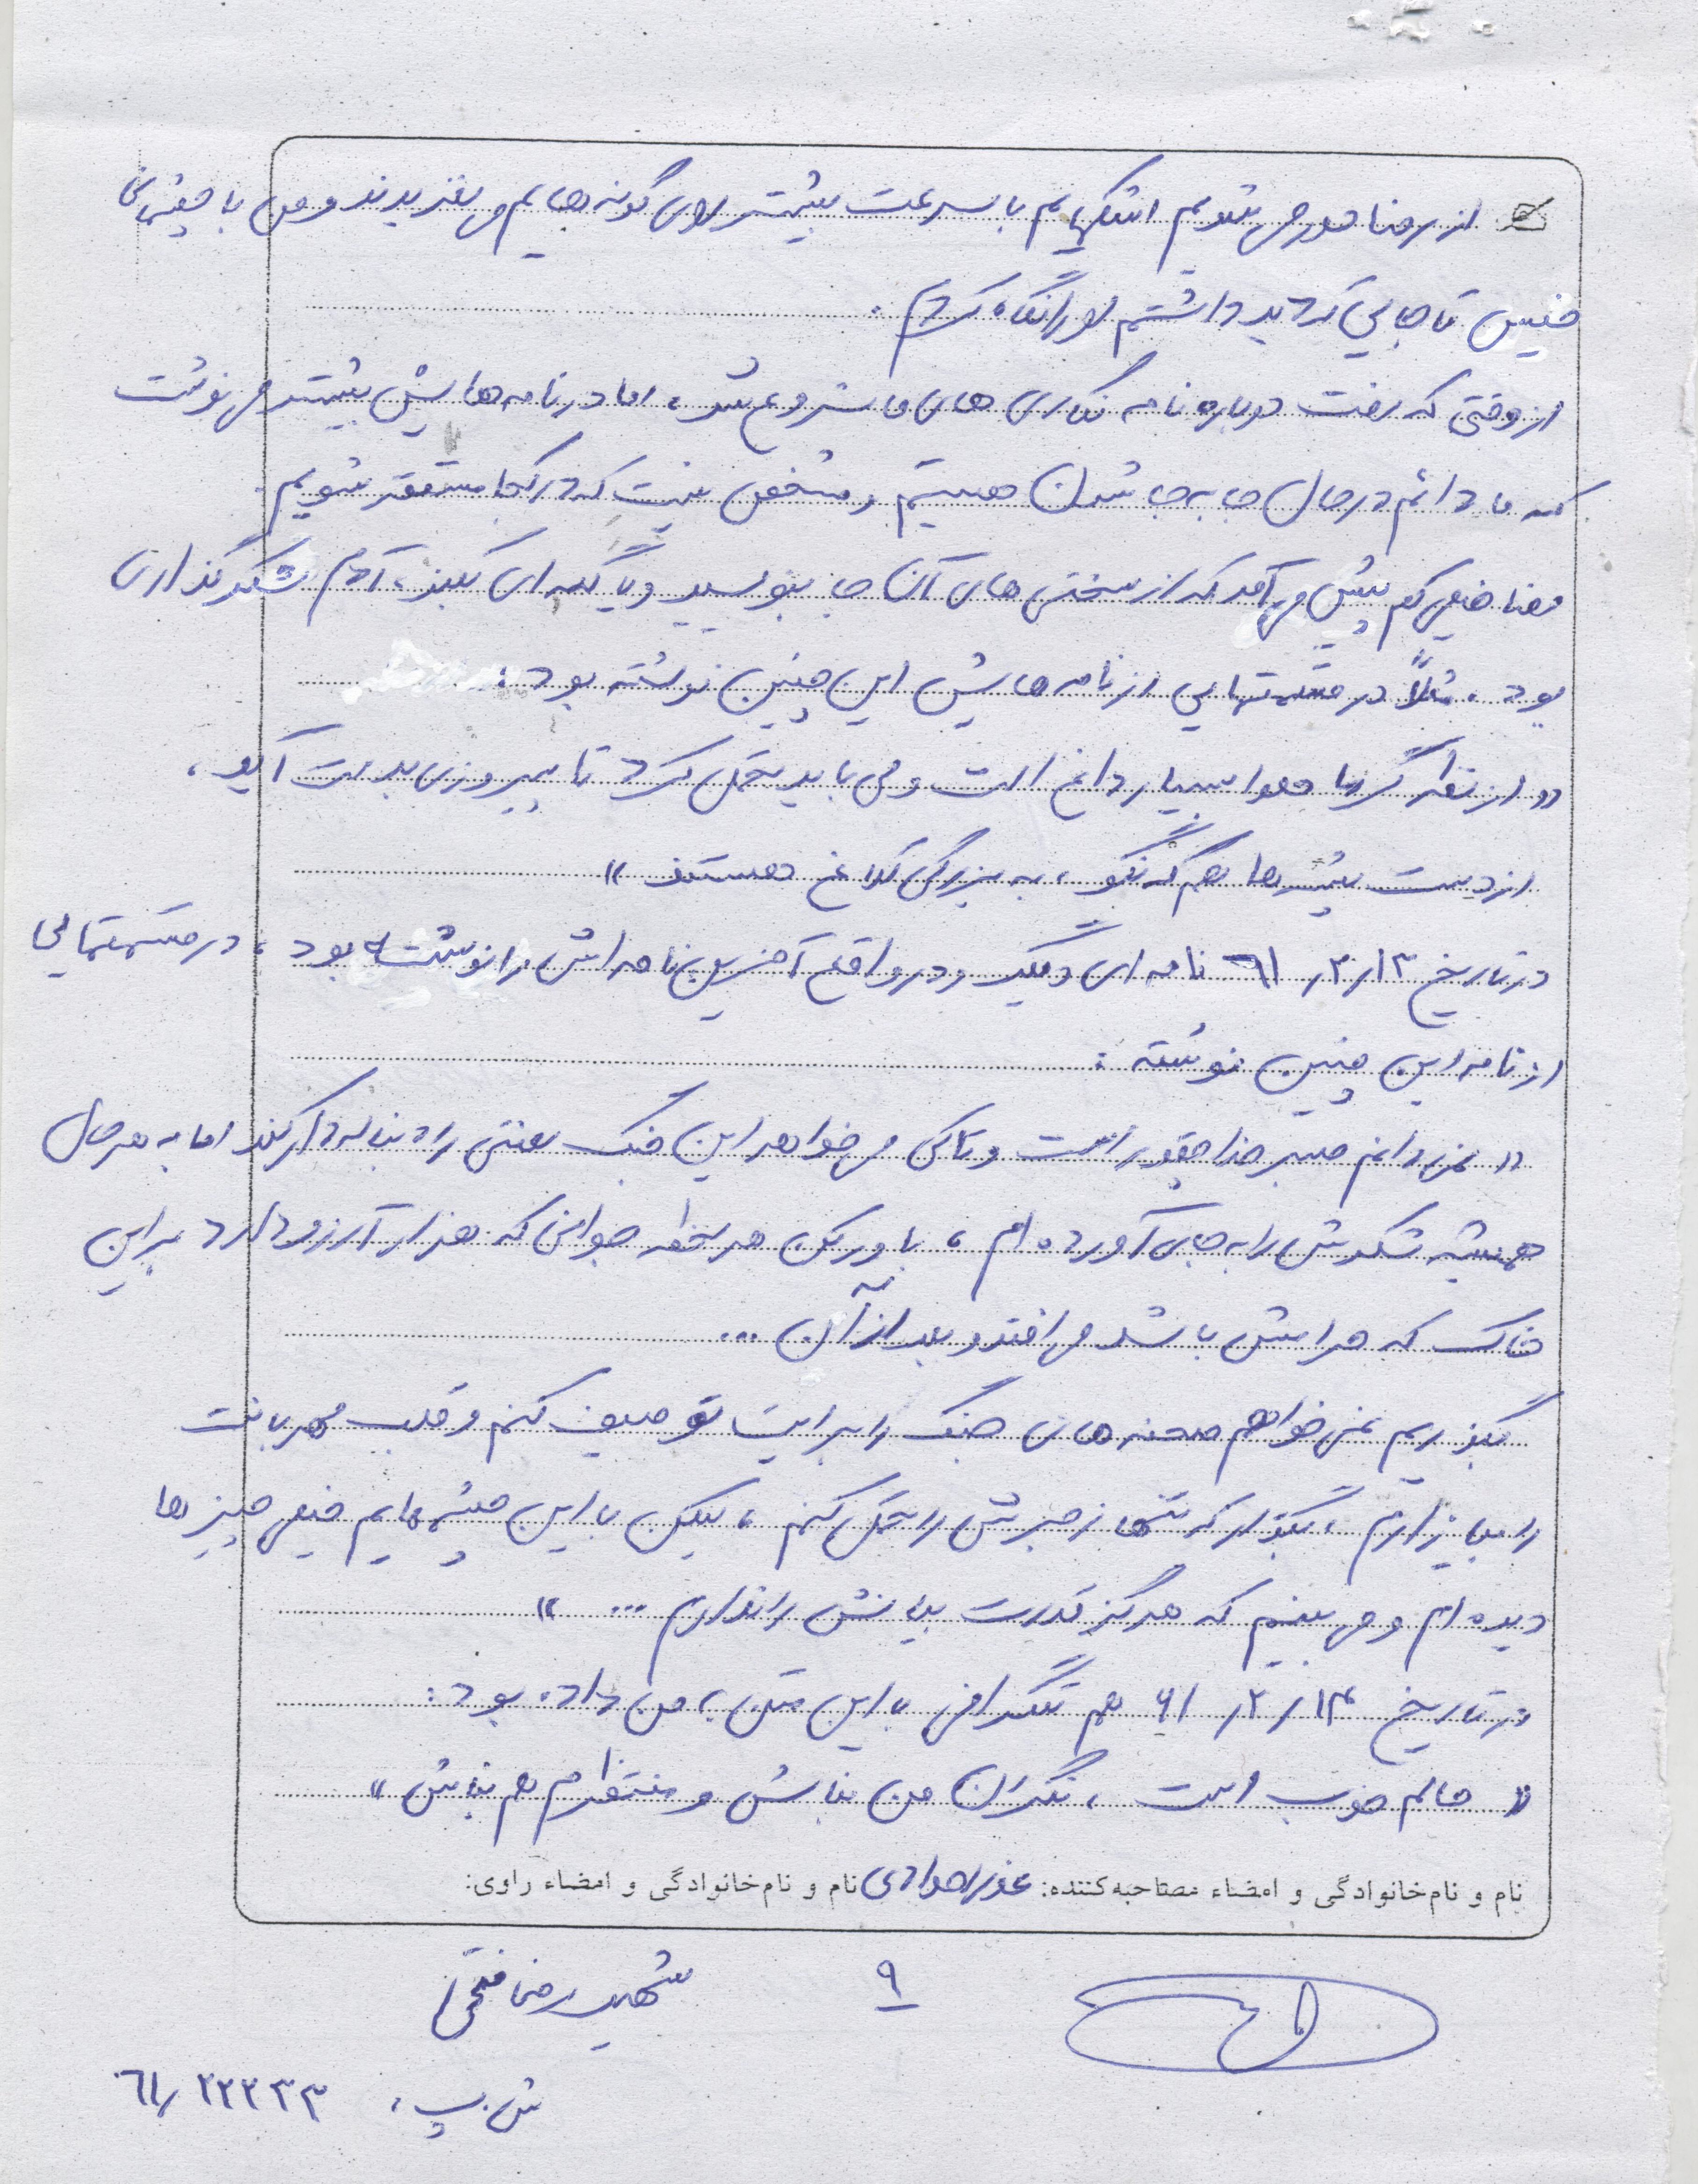 از رضا دور می شدم اشکهایم با سرعت بیشتر روی گونه هایم می لغزیدند و من با چشمانی
خیس تا جایی که دید داشتم او را نگاه کردم.
از وقتی که رفت دوباره نامه نگاری های ما شروع شد، اما در نامه هایش بیشتر می نوشت
که ما دائم در حال جا به جا شدن هستیم و مشخص نیست که در کجا مستقر شویم.
رضا خیلی کم پیش می آمد که از سختی های آن جا بنویسد و یا گله ای بکند، آدم شکرگذاری
بود، مثلاً در قسمتهایی از نامه هایش این چنین نوشته بود:
«از نظر گرما هوا بسیار داغ است ولی باید تحمل کرد تا پیروزی بدست آید،
از دست پشه ها هم که نگو، به بزرگی کلاغ هستند»
در تاریخ ۱۳/۲/۶۱ نامه ای دیگر و در واقع آخرین نامه اش را نوشته بود، در قسمتهایی
از نامه این چنین نوشته:
«نمی دانم صبر خدا چقدر است و تا کی می خواهد این جنگ لعنتی ادامه پیدا کند اما به هر حال
همیشه شکرش را به جای آورده ام، باور کن هر لحظه جوانی که هزار آرزو دارد بر این
خاک که هرایش باشد می افتد و بعد از آن ...
بگذریم نمی خواهم صحنه های جنگ را برایت توصیف کنم و قلب مهربانت
را بیازارم، بگذار که تنها زجرش را تحمل کنم، لیکن با این چشمهایم خیلی چیزها
دیده ام و می بینم که هرگز قدرت بیانش را ندارم ...»
در تاریخ ۱۴/۲/۶۱ هم تلگرافی با این متن به من داده بود:
«حالم خوب است، نگران من نباش و منتظرم هم نباش»
نام و نام خانوادگی و امضاء مصاحبه کننده: نام و نام خانوادگی و امضاء راوی:
۹
شهید رضا فتحی
ش. پ، ۶۱/۲۲۳۳۳